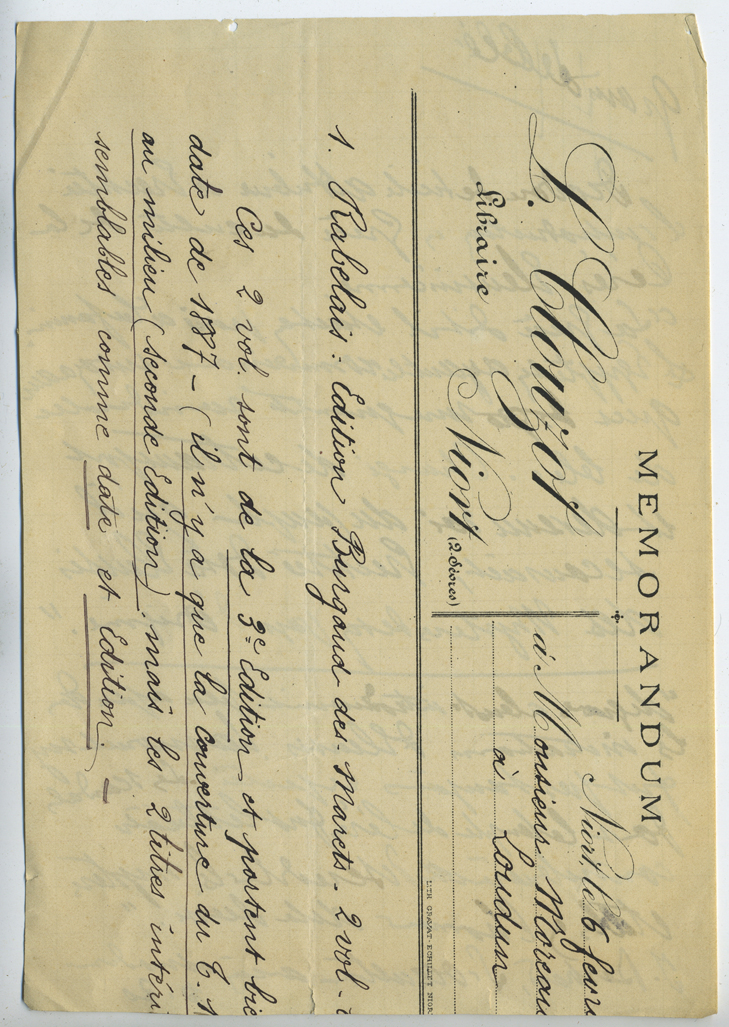 MEMORANDUM
L. Clouzot
Libraire
Niort (2 Sèvres)
Niort le 6 févr
à Monsieur Moreau
à Loudun
LITH. GRAVAT-ECHILLET NIOR
1. Rabelais: Edition Burgaud des-Marets_ 2 vol_
Ces 2 vol sont de la 3e Edition et portent bie
date de 1887 - (il n'y a que la couverture du T. 1
au milieu (seconde Edition) mais les 2 titres intéri
semblables comme date et Edition.) _